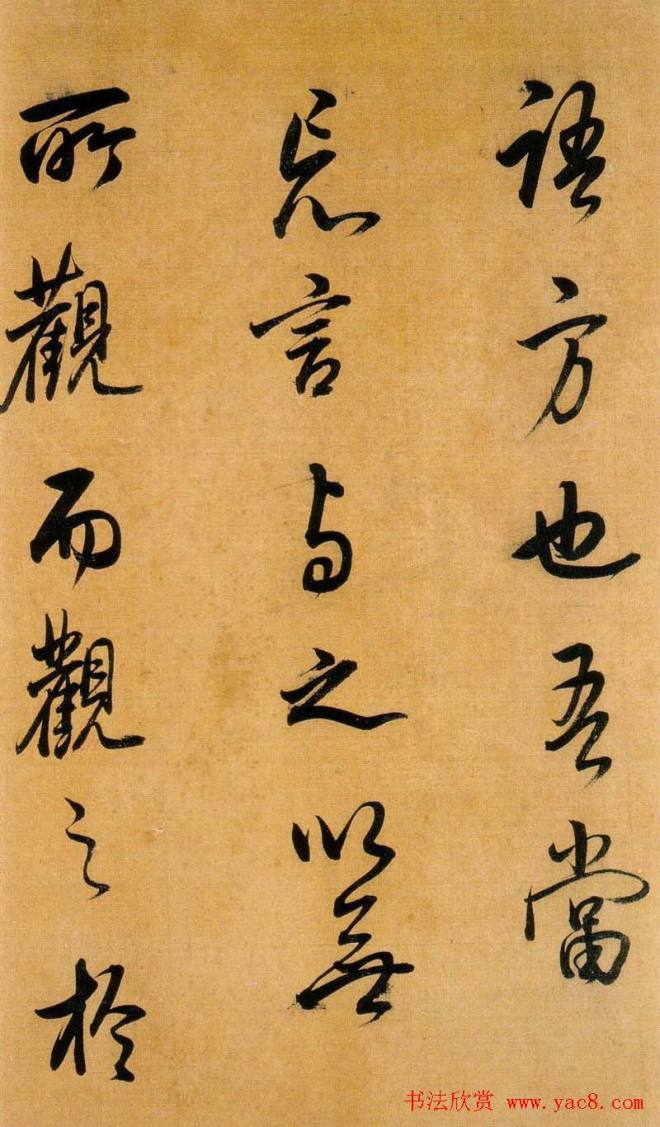 語方也吾當
忘言与之以無
所觀而觀之於
书法欣赏 www.yac8.com